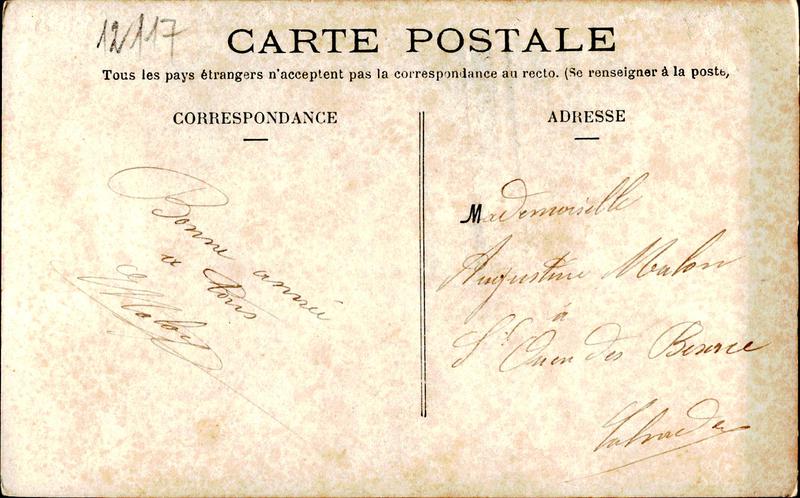 12117
CARTE POSTALE
Tous les pays étrangers n'acceptent pas la correspondance au recto. (Se renseigner à la poste,
CORRESPONDANCE
ADRESSE
Bonne année
à tous
Mademoiselle
Augustine Malon
à
St Ouen des Besace
Calvados